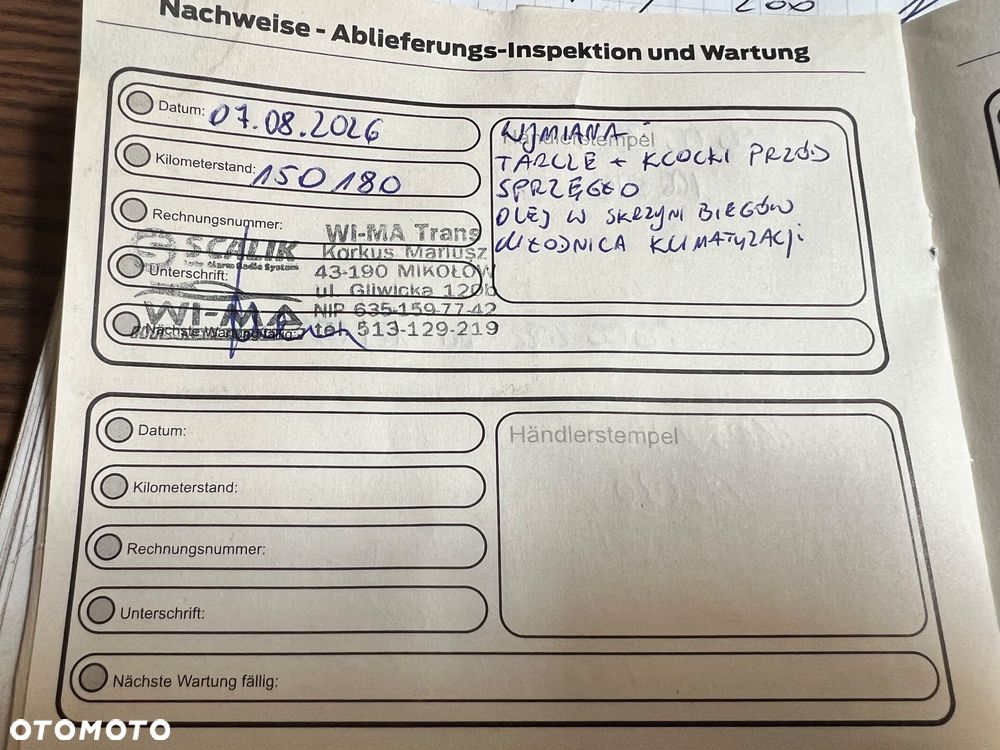 200
Nachweise - Ablieferungs-Inspektion und Wartung
Datum: 07.08.2026
Kilometerstand: 150 180
Rechnungsnummer:
Unterschrift:
Nächste Wartung fällig:
SCALIK
Auto Alarm Radio System
WI-MA
WI-MA Trans
Korkus Mariusz
43-190 MIKOŁÓW
ul. Gliwicka 120b
NIP 635-159-77-42
tel. 513-129-219
Händlerstempel
WYMIANA:
TARCZE + KLOCKI PRZÓD
SPRZĘGŁO
OLEJ W SKRZYNI BIEGÓW
CHŁODNICA KLIMATYZACJI
Datum:
Kilometerstand:
Rechnungsnummer:
Unterschrift:
Nächste Wartung fällig:
Händlerstempel
OTOMOTO